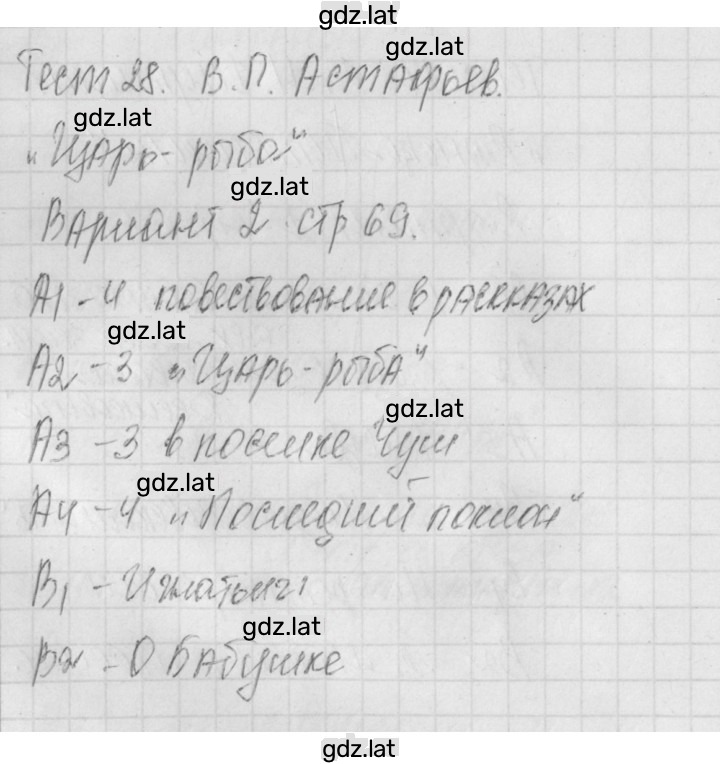 gdz.lat
gdz.lat
Тест 28. В.П. Астафьев.
gdz.lat
"Царь-рыба"
gdz.lat
Вариант 2 стр 69.
А1 - 4 повествование в рассказах
gdz.lat
А2 - 3 "Царь-рыба"
gdz.lat
А3 - 3 в поселке Чуш
gdz.lat
А4 - 4 "Последний поклон"
В1 - Игнатьич
gdz.lat
В2 - О Бабушке
gdz.lat